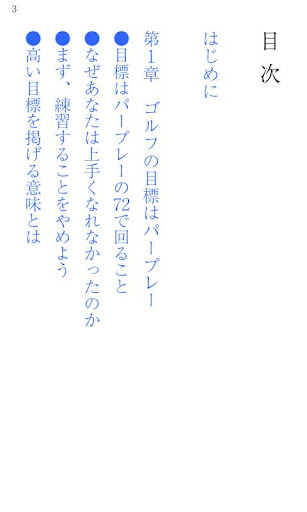 3
目次
はじめに
第1章　ゴルフの目標はパープレー
●目標はパープレーの72で回ること
●なぜあなたは上手くなれなかったのか
●まず、練習することをやめよう
●高い目標を掲げる意味とは